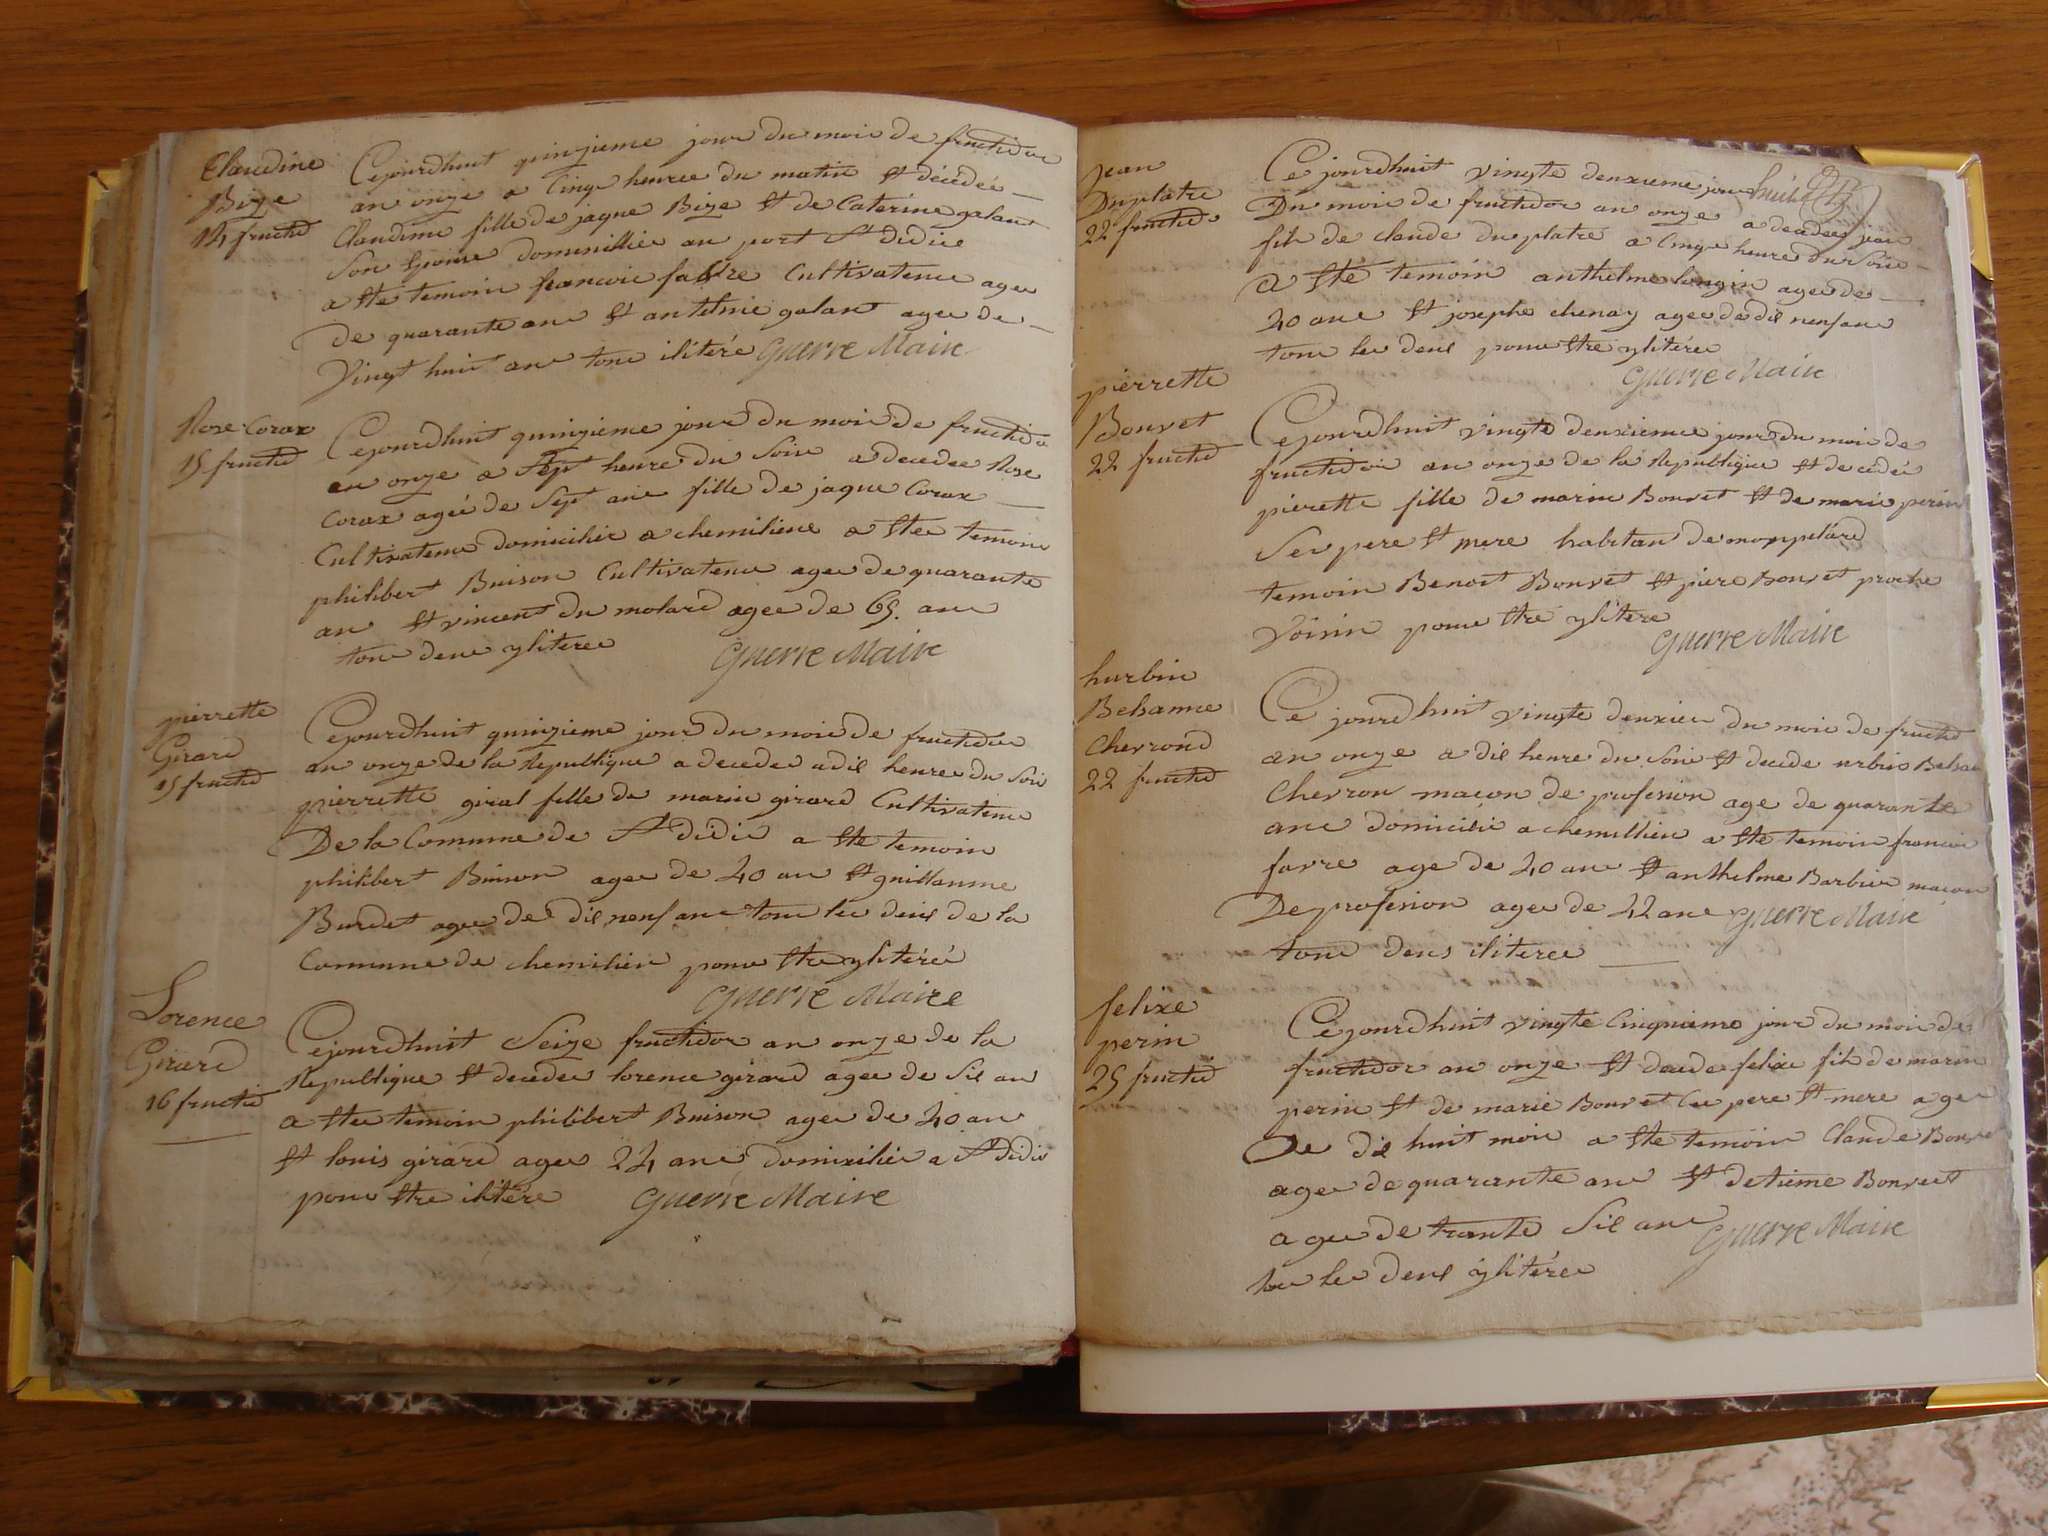 Claudine
Bize
14 fructid
Cejourdhuit quinzieme jour du mois de fructidor
an onze a Cinqe heures du matin et décédée
Claudine fille de jaque Bize et de Caterine galant
Son Epouse domicillier au port St didier
a ete temoin francoie favre Cultivateur agee
de quarante ans et antelme galant agee de
Vingt huit ans tous ilitéré Guerre Maire
Rose Corax
15 fructid
Cejourdhuit quinzieme jour du mois de fructidor
an onze a Sept heure du Soir a decedee Rose
Corax ageé de Sept ans fille de jaque Corax
Cultivateur domicilié a chemilieu a etee temoin
philibert Buison Cultivateur agee de quarante
ans et vincent du molard agee de 65 ans
tous deux yliteree Guerre Maire
pierrette
Girard
15 fructid
Cejourdhuit quinzieme jour du mois de fructidor
an onze de la Republique a decedee a dix heures du Soir
pierrette giral fille de marin girard Cultivateur
De la Commune de St didié a ete temoin
philibert Buison agee de 40 an et guillaume
Burdet agee de dix neuf ans tous les deux de la
Commune de chemilieu pour etre ylitéré
Guerre Maire
Lorence
Girard
16 fructid
Cejourdhuit Seize fructidor an onze de la
Republique et decedee lorence girard agee de Six an
a etee temoin philibert Buison agee de 40 an
et louis girard agee 24 ans domicilier a St didie
pour etre ilitére Guerre Maire
jean
Duplatre
22 fructid
Ce jourdhuit vingte deuxieme jour huité
Du mois de fructidor an onze a decedee jean
fils de claude duplatre a Cinqe heure du Soir
a ete temoin anthelme longin agee de
40 ans et josephe chenay agee de dix neuf ans
tous les deux pour etre ylitérée
Guerre Maire
pierrette
Bouvet
22 fructid
Cejourdhuit vingte deuxieme jour du mois de
fructidor an onze de la Republique et decedé
pierette fille de marin Bouvet et de marie perin
Ses pere et mere habitan de
temoin Benoit Bouvet et piere Bouvet proche
Voisin pour etre ylitere
Guerre Maire
hurbin
Belsanne
Chevrond
22 fructid
Ce jourdhuit vingte deuxiem du mois de fructid
an onze a dix heure du Soir et decede urbin
Chevron macon de profesion age de quarante
ans domicilié a chemillieu a ete temoin francoi
favre age de 40 ans et anthelme Barbier macon
De profesion agee de 42 ans Guerre Maire
tous deux iliteree
felixe
perin
25 fructid
Cejourdhuit vingte Cinquieme jour du mois de
fructidor an onze et decede felixe fils de marin
perin et de marie Bouvet Ces pere et mere agee
De dix huit mois a ete temoin Claude Bouvet
agee de quarante ans et detieme Bouvet
agee de trante Six ans Guerre Maire
tous les deux ylitérée